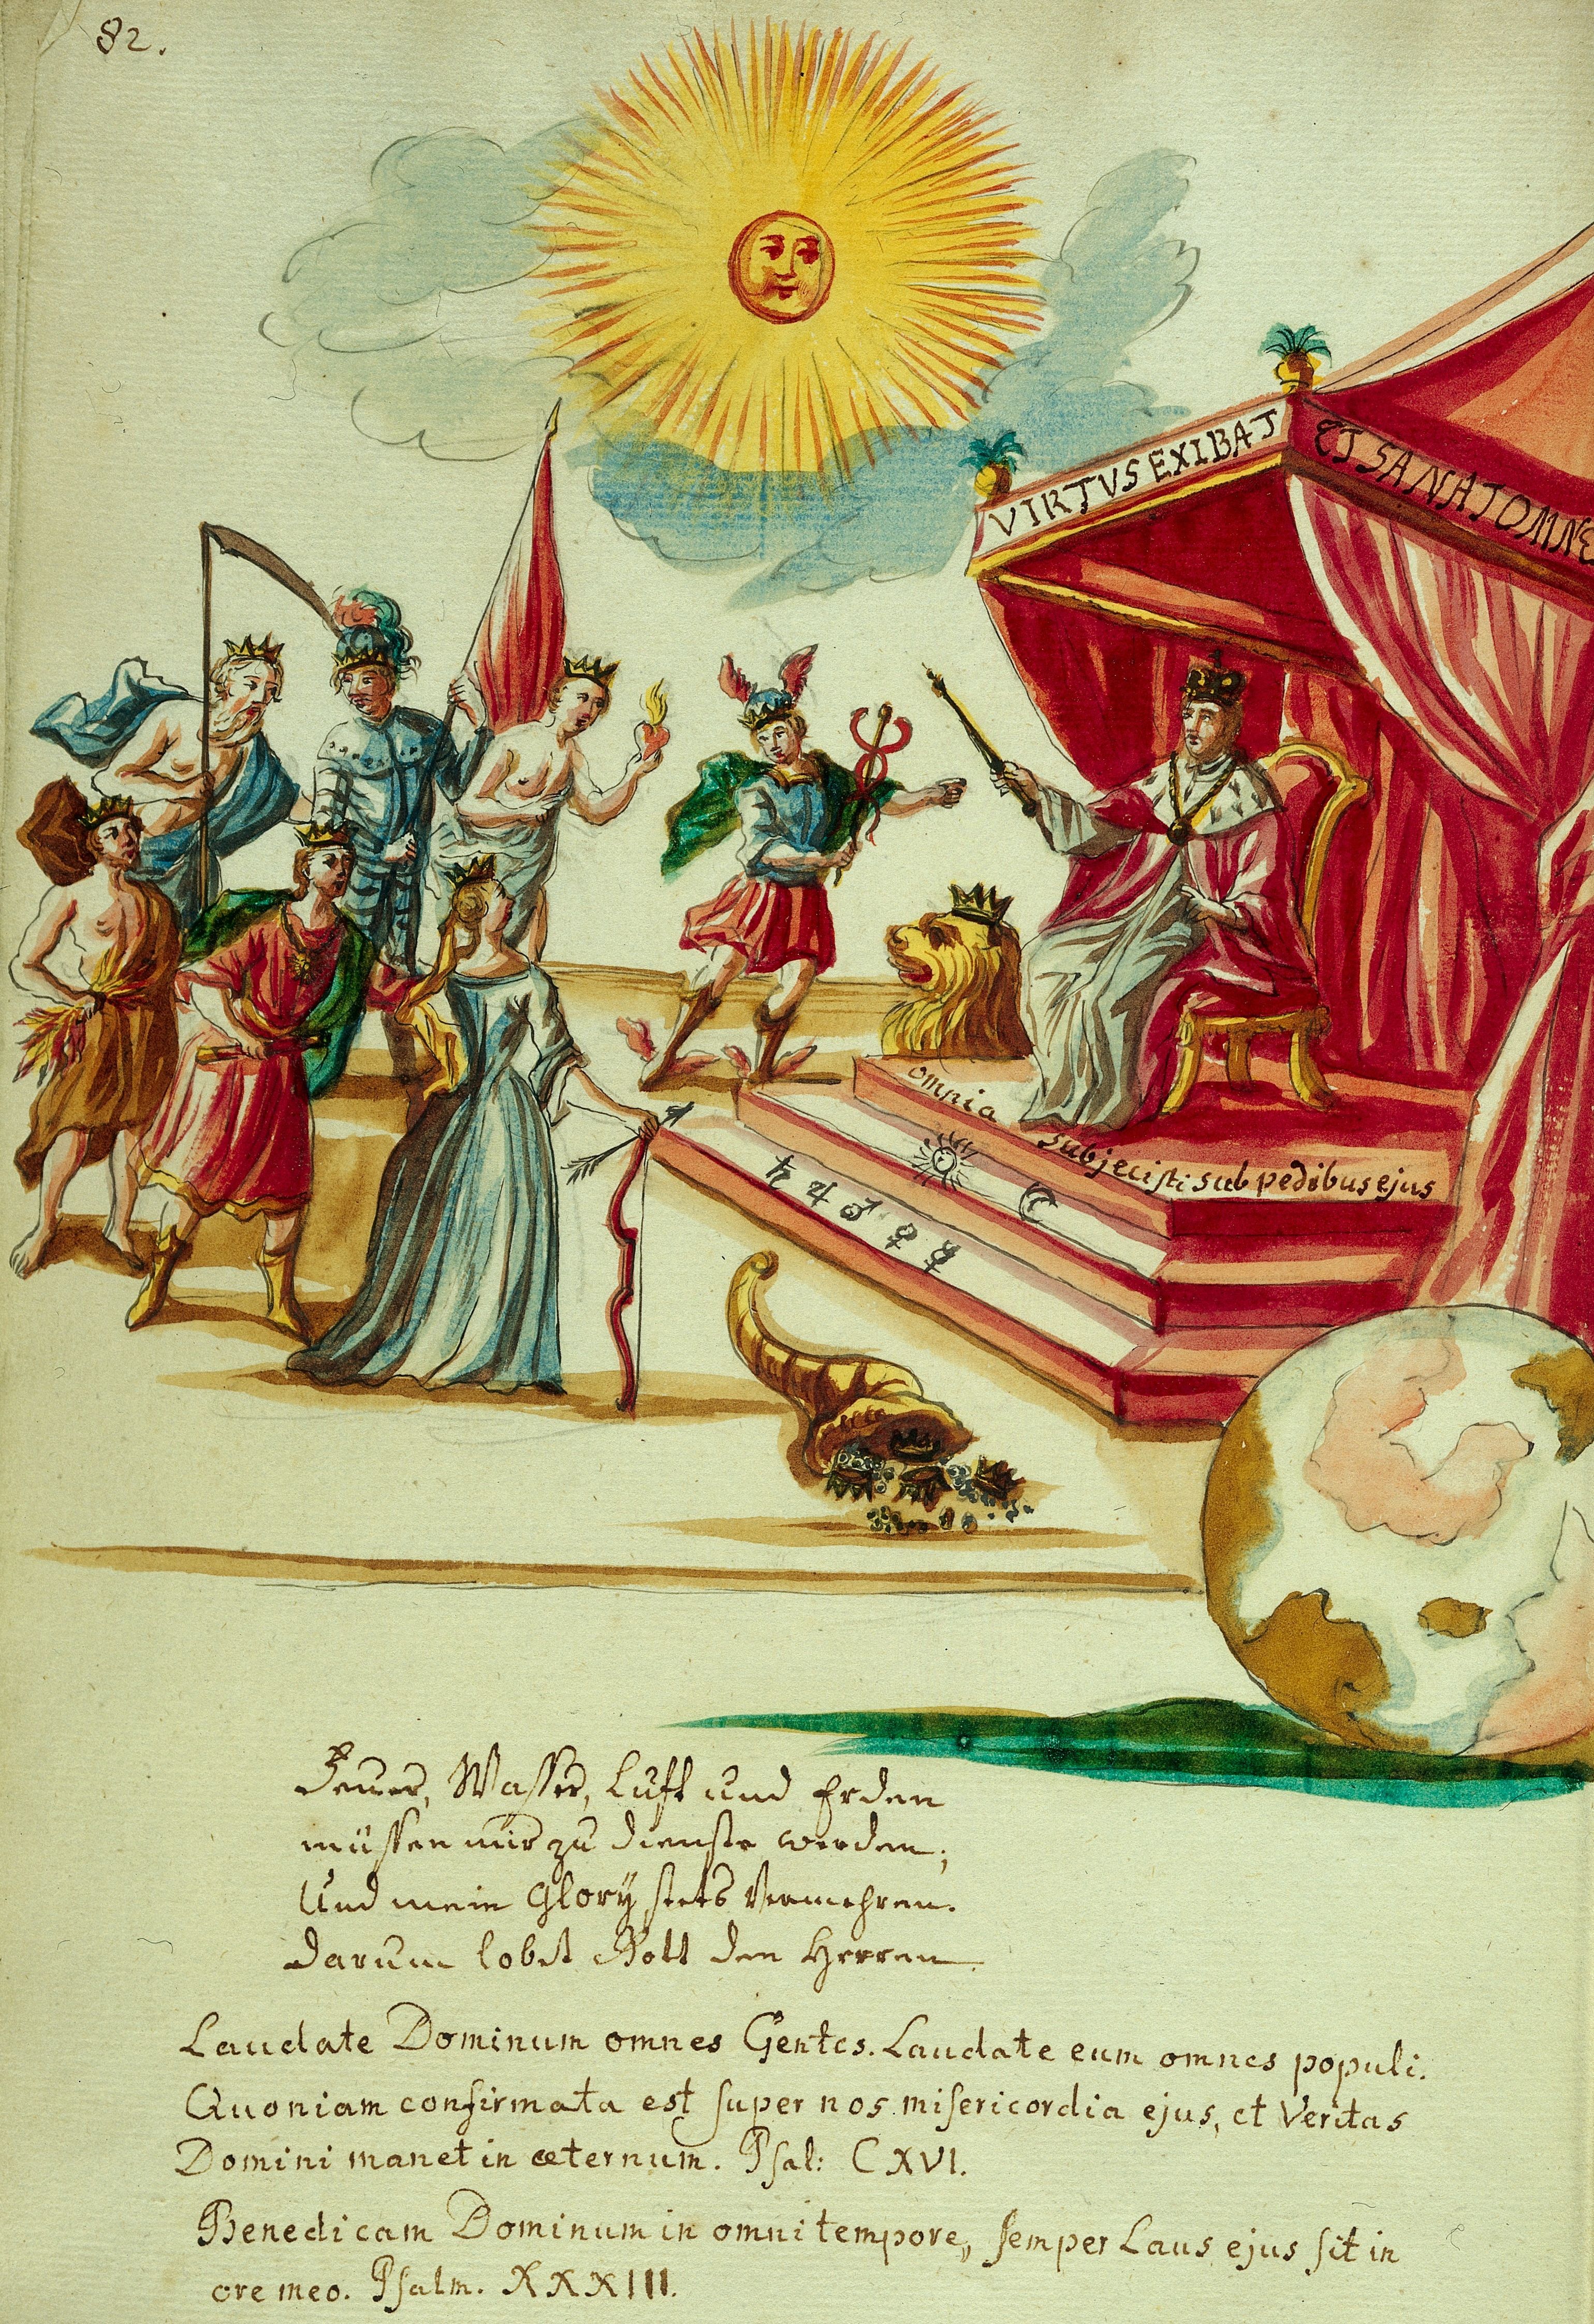 82.
VIRTVS EXIBAT
ET SANAT OMNE
omnia subjecisti sub pedibus ejus
♄ ♃ ♂ ♀ ☿
Feuer, Wasser, Lufft und Erden
müssen mir zu dienste werden;
Und mein Glory stets Vermehren.
darum lobet Gott den Herren
Laudate Dominum omnes Gentes. Laudate eum omnes populi.
Quoniam confirmata est super nos misericordia ejus, et Veritas
Domini manet in æternum. Psal: CXVI.
Benedicam Dominum in omni tempore, semper Laus ejus sit in
ore meo. Psalm. XXXIII.